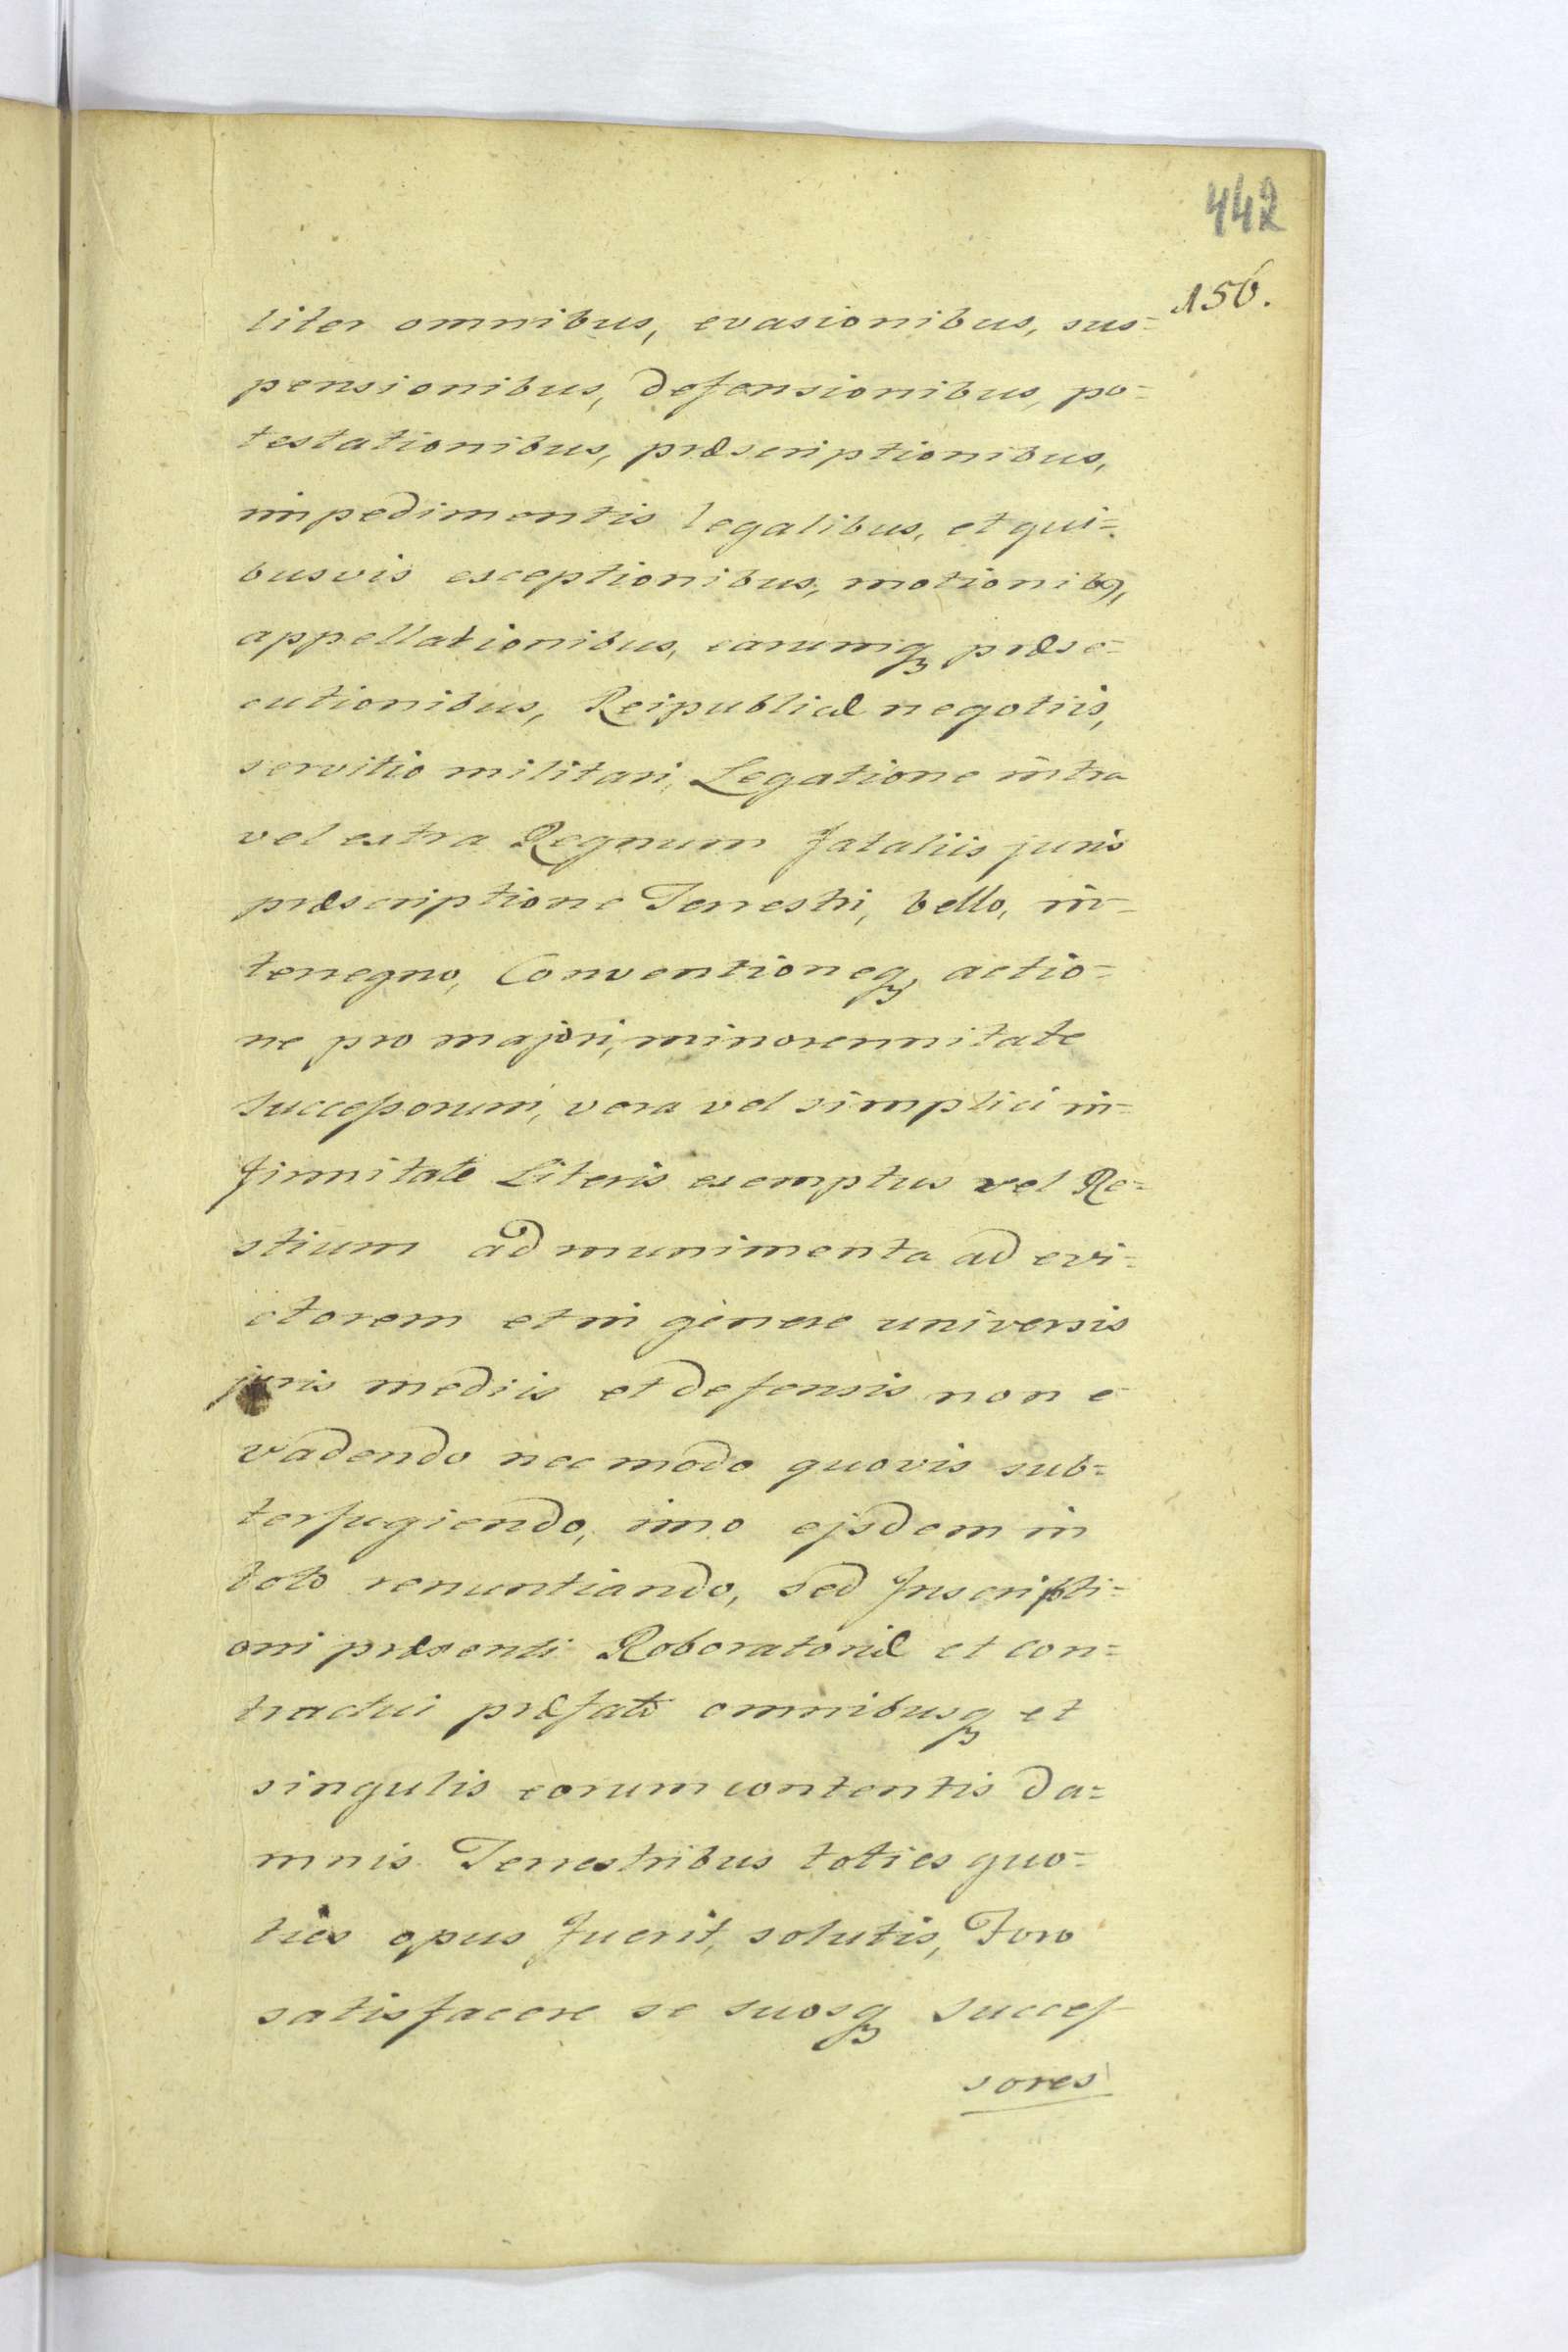 442
156.
liter omnibus, evasionibus, sus=
pensionibus, defensionibus, po=
testationibus, præscriptionibus,
impedimentis legalibus, et qui=
busvis exceptionibus, motionibꝰ,
appellationibus, earumqꝫ præse=
cutionibus, Reipublicæ negotiis,
servitio militari, Legatione intra
vel extra Regnum fataliis juris
præscriptione Terrestri, bello, in=
terregno, Conventioneqꝫ actio=
ne pro majori, minorennitate
Successorum, vera vel simplici in=
firmitate Literis exemptus vel Re=
stium ad munimenta ad evi=
ctorem et in genere universis
juris mediis et defensis non e
vadendo nec modo quovis sub=
terfugiendo, imo ejsdem in
toto renuntiando, sed Inscripti=
oni præsenti Roboratoriæ et con=
tractui præfato omnibusqꝫ et
singulis eorum contentis da=
mnis Terrestribus toties quo=
ties opus fuerit, solutis, Foro
satisfacere se suosqꝫ Succes
sores